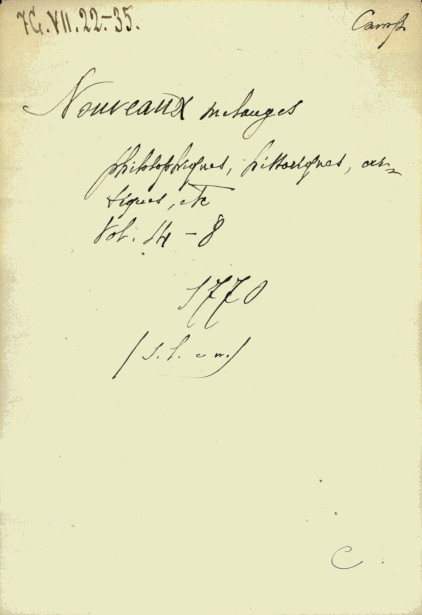 7G.VII.22-35.
Camp
Nouveaux melanges
philosophiques, historiques, cri-
tiques, etc
Vol. 14 - 8
1770
(s. l. a n.)
C